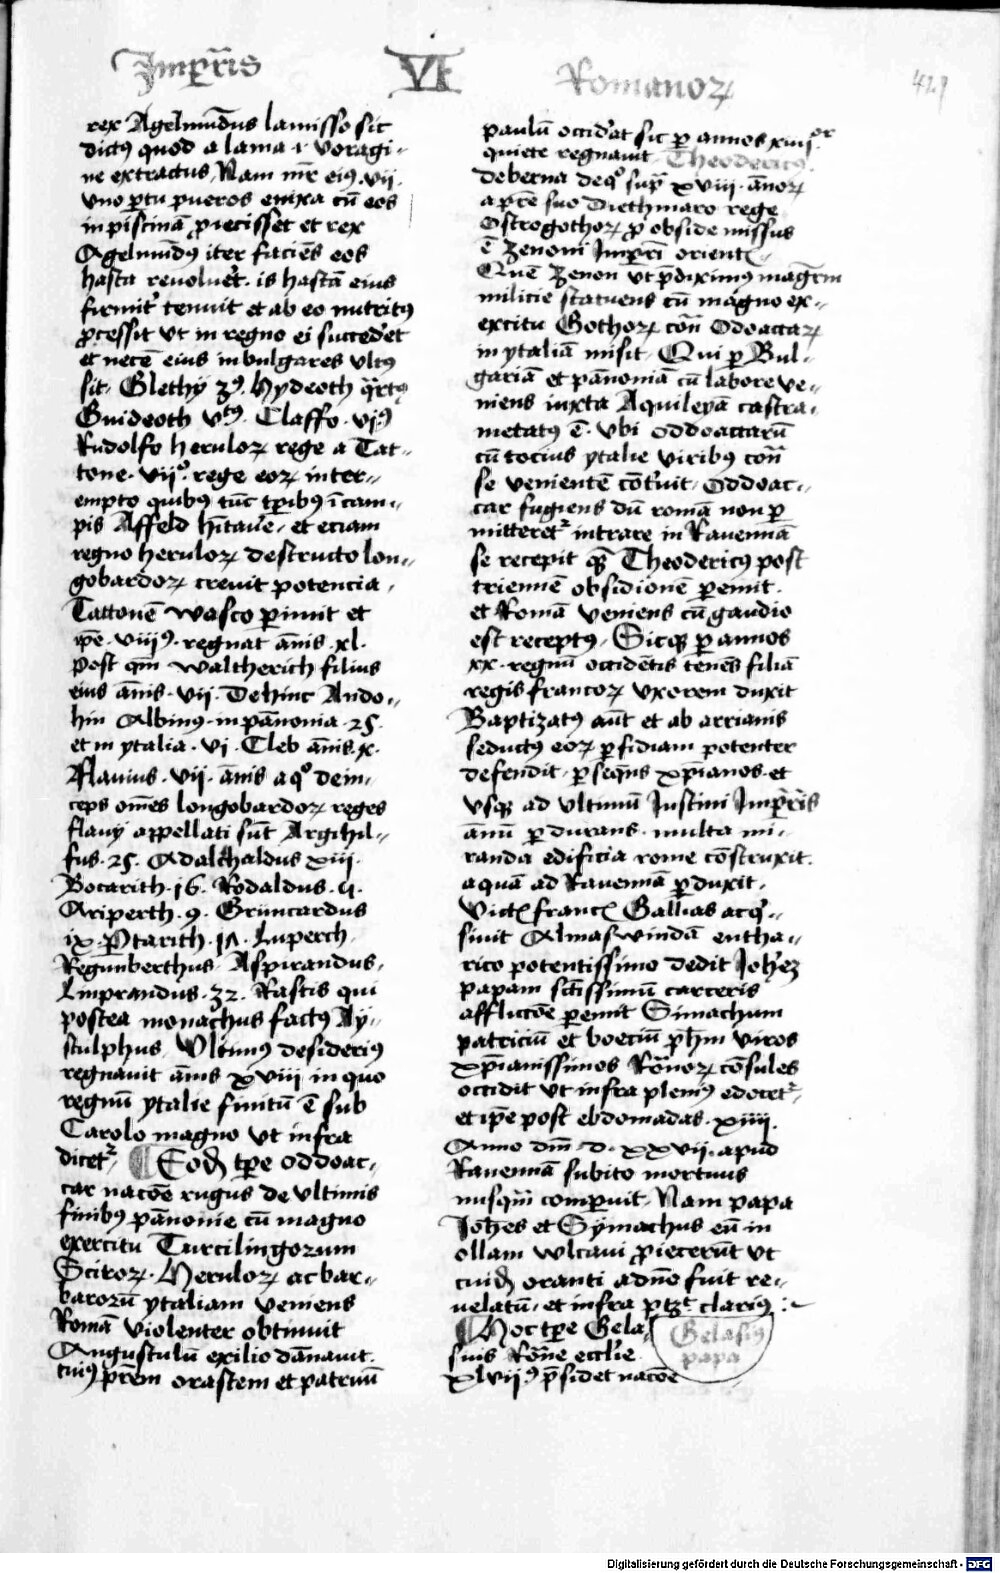 Imp̄ris VI Romanoꝝ 429
rex Agelmūdus lamisso sic
dictꝰ quod a lama .i. voragi-
ne extractus, Nam mr̄ eiꝰ .vii.
vno ptu pueros enixa cū eos
in piscinā ꝓiecisset et rex
Agelmūdꝰ iter faciēs eos
hasta reuoluet̄. is hastā eius
firmit̄ tenuit et ab eo nutritꝰ
ꝓcessit vt in regno ei succedet̄
et necē eius in bulgares vltꝰ
sit. Glethy 3ꝰ. Hydeoth qrtꝰ
Guideoth vtꝰ. Claffo .viꝰ.
Rudolfo heruloꝝ rege a Tat-
tone .viiº. rege eoꝝ inter-
empto quibꝰ tūc tꝑibꝰ ī cam-
pis Affeld hītauer̄, et eciam
regno heruloꝝ destructo lon-
gobardoꝝ creuit potencia.
Tattonē wasco ꝑimit et
ip̄e .viiiꝰ. regnat ānis .xl.
post quē waltherich filius
eius ānis .vii. Dehinc Audo-
hin Albinꝰ in pānonia .25.
et in ytalia .vi. Cleb ānis .x.
Flauius .vii. ānis a qº dein-
ceps om̄es longobardoꝝ reges
flauy appellati sūt Argihil-
fus .25. Adalthaldus xiii.
Bocarith .16. Rodaldus .4.
Ariperth .9. Gruncardus
ix. Ptarith .17. Luperch,
Regunberthus, Asprandus,
Lmprandus .32. Rastis qui
postea monachus factꝰ Ay-
stulphus, Vltimꝰ desideriꝰ
regnauit ānis xviii in quo
regnū ytalie finitū ē sub
Carolo magno vt infra
dicet̄. Eodē tꝑe oddoac-
car nacōe rugus de vltimis
finibꝰ pānonie cū magno
exercitu Turcilingorum
Sciroꝝ. Heruloꝝ ac bar-
barorū ytaliam veniens
Romā violenter obtinuit
Augustulū exilio dānauit.
cuiꝰ pr̄em orastem et patruū
paulū occidat sic ꝑ annos xiiii.
quiete regnauit Theodericꝰ
de berna de qº sup̄ xviii. ānoꝝ
a pr̄e suo Diethmaro rege
Ostrogothoꝝ ꝓ obside missus
ē Zenoni Imp̄ri orient̄
Quē Zenon vt ꝑdiximꝰ magr̄m
milicie statuens cū magno ex-
excitu Gothoꝝ cōn̄ Odoaccaꝝ
in ytaliā misit. Qui ꝑ Bul-
gariā et pānoniā cū labore ve-
niens iuxta Aquileyā castra-
metatꝰ ē. vbi oddoaccarū
cū tocius ytalie viribus cōn̄
se venientē cōt̄uit. Oddoac-
car fugiens dū romā non ꝑ
mitteret̄ intrare in Rauennā
se recepit qē Theodericꝰ post
triennē obsidionē ꝑemit.
et Romā veniens cū gaudio
est receptꝰ. Sicqꝫ ꝑ annos
xx. regnū occidētis tenēs filiā
regis francoꝝ vxorem duxit
Baptizatꝰ aūt et ab arrianis
seductꝰ eoꝝ ꝑfidiam potenter
defendit. ꝑseqn̄s xp̄ianos et
vsqꝫ ad vltimū Iustini Imp̄ris
ānū ꝑdurans. multa mi-
randa edificia rome cōstruxit.
aquā ad Rauennā ꝑduxit.
Victꝭ francꝭ Gallias acq̄-
siuit Almaswindā eutha-
rico potentissimo dedit Joh̄eꝫ
papam sc̄tissimū carceris
afflictōe ꝑemit Simachum
patriciū et boeciū ph̄m viros
xp̄ianissimos Rōnoꝝ cōsules
occidit vt infra pleniꝰ edocet̄,
et ip̄e post ebdomadas .xiiii.
Anno dn̄i .d. xxvii. apud
Rauennā subito mortuus
nusqm̄ comꝑuit. Nam papa
Joh̄es et Symachus eū in
ollam wlcani ꝓiecerūt vt
cuidē oranti a dn̄o fuit re-
uelatū, et infra ptꝫ clariꝰ :~
Hoc tꝑe Gela Gelasiꝰ
suis Rōne eccl̄ie papa
xlviiꝰ p̄sidet nacōe
Digitalisierung gefördert durch die Deutsche Forschungsgemeinschaft - DFG